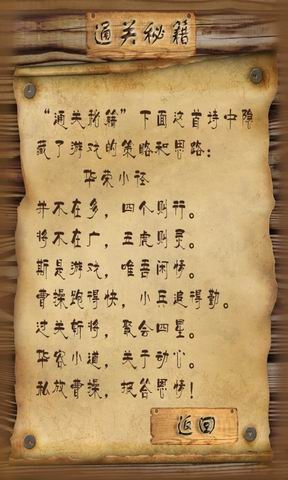 通关秘籍
“通关秘籍”下面这首诗中隐
藏了游戏的策略和思路：
华荣小径
并不在多，四个则行。
将不在广，五虎则灵。
斯是游戏，唯吾闲情。
曹操跑得快，小兵追得勤。
过关斩将，聚会四星。
华容小道，关于动心。
私放曹操，报答恩情！
返回